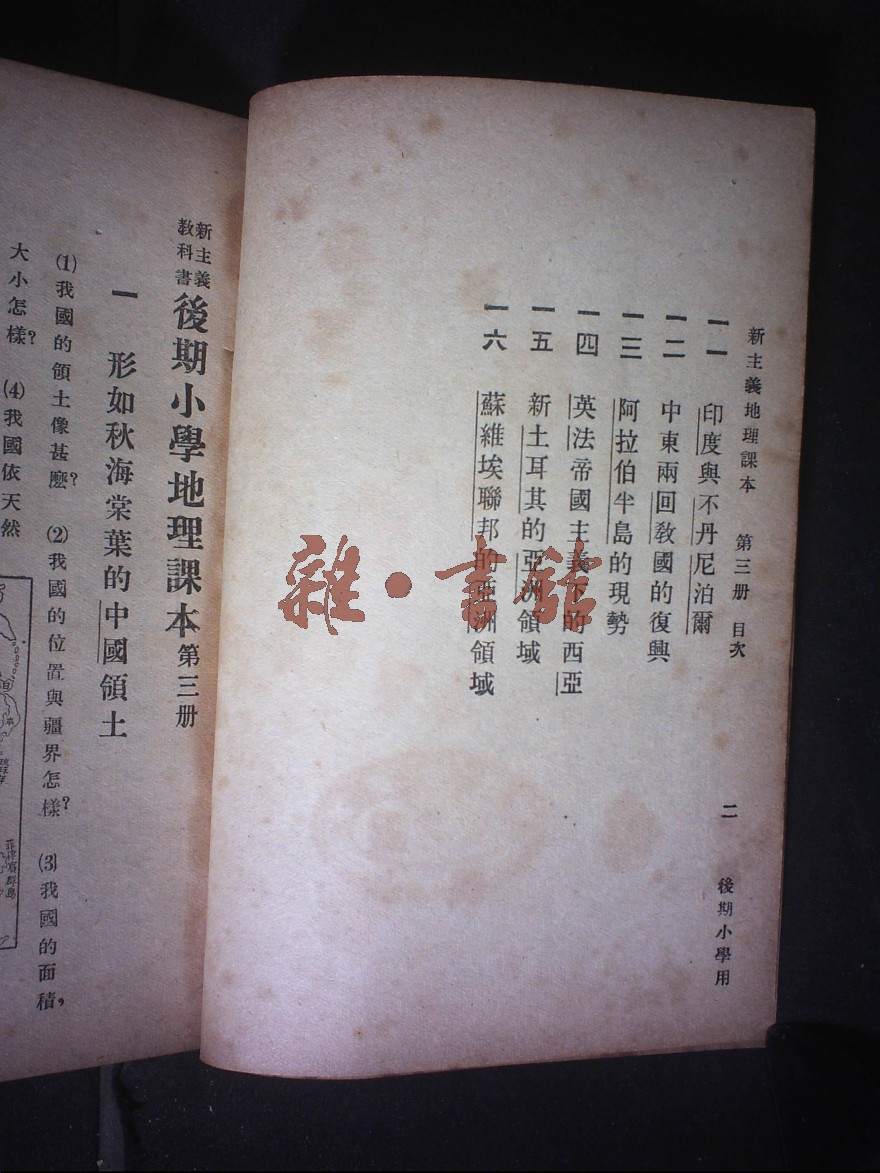 新主義地理課本 第三册 目次 二 後期小學用
一一 印度與不丹尼泊爾
一二 中東兩回教國的復興
一三 阿拉伯半島的現勢
一四 英法帝國主義下的西亞
一五 新土耳其的亞洲領域
一六 蘇維埃聯邦的亞洲領域
雜·書館
新主義
教科書
後期小學地理課本 第三册
一 形如秋海棠葉的中國領土
(1)我國的領土像甚麼? (2)我國的位置與疆界怎樣? (3)我國的面積,
大小怎樣? (4)我國依天然
菲律賓群島